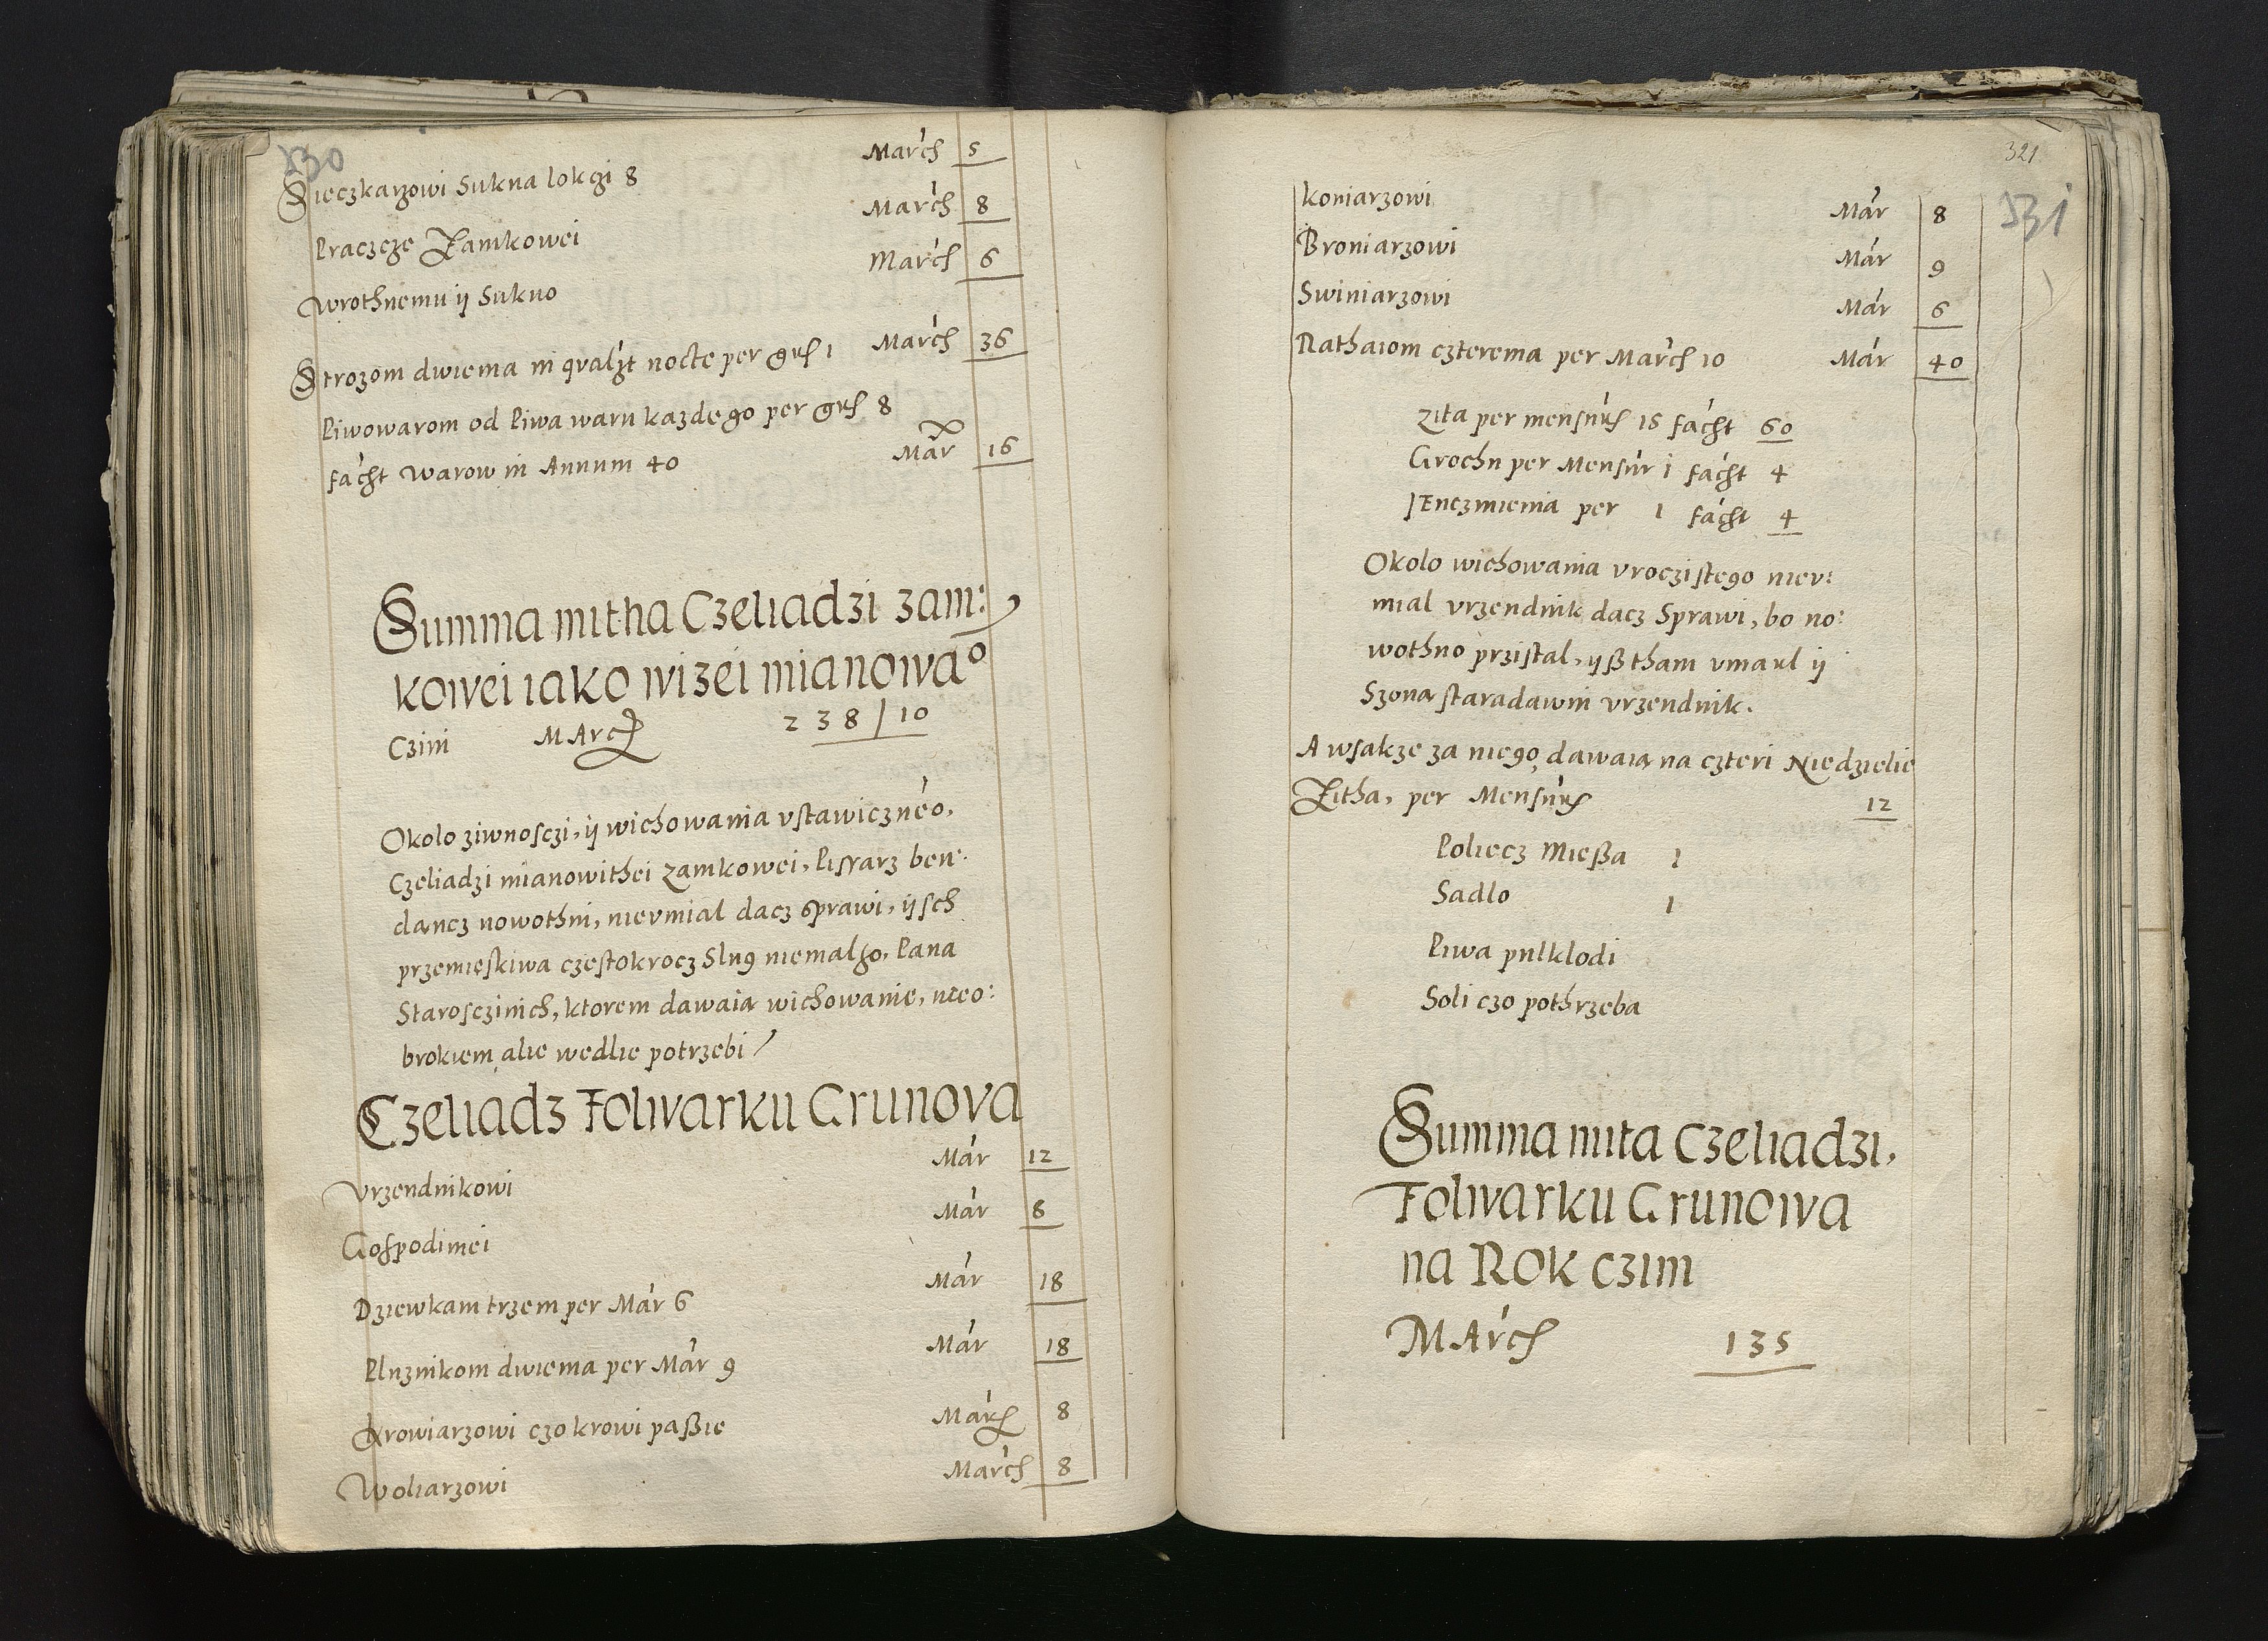 530
March 5
Sieczkarzowi Sukna lokgi 8
March 8
Praczcze Zamkowei
March 6
Wrothnemu ÿ Sukno
Strozom dwiema in qualzt nocte per grs 1 March 36
Piwowarom od Piwa waru kazdego per grs 8
facht Warow in Annum 40 Mar 16
Summa mitha Czeliadzi zam:
kowei iako wizei mianowa°
Czini March 238 | 10
Okolo ziwnosczi, ÿ wichowania ustawiczneo,
Czeliadzi mianowithei zamkowei, Pissarz ben:
dancz nowothni, nieumial dacz sprawi, ÿsch
przemięskiwa częstokrocz Slug niemalgo, Pana
Starosczinich, ktorem dawaią wichowanie, nieo:
brokiem, alie wedlie potrzebi /
Czeliadz Folwarku Grunova
Mar 12
Vrzendnikowi
Mar 8
Gospodinei
Mar 18
Dziewkam trzem per Mar 6
Mar 18
Pluznikom dwiema per Mar 9
Krowiarzowi czo krowi paßie Mark 8
March 8
Woliarzowi
321
531
koniarzowi Mar 8
Broniarzowi Mar 9
Swiniarzowi Mar 6
Rathaiom czterema per March 10 Mar 40
Zita per mensur 15 facht 60
Grochu per Mensur 1 facht 4
JEnczmienia per 1 facht 4
Okolo wichowania vroczistego nieu:
mial vrzendnik dacz Sprawi, bo no:
wothno przistal, ÿß tham vmarl ÿ
Szona staradawni vrzendnik.
A wsakze za niego, dawaią na czteri Niedzielie
Zitha, per Mensur 12
Poliecz Mießa 1
Sadlo 1
Piwa pulklodi
Soli czo pothrzeba
Summa mita Czeliadzi,
Folwarku Grunowa
na Rok czim
March 135